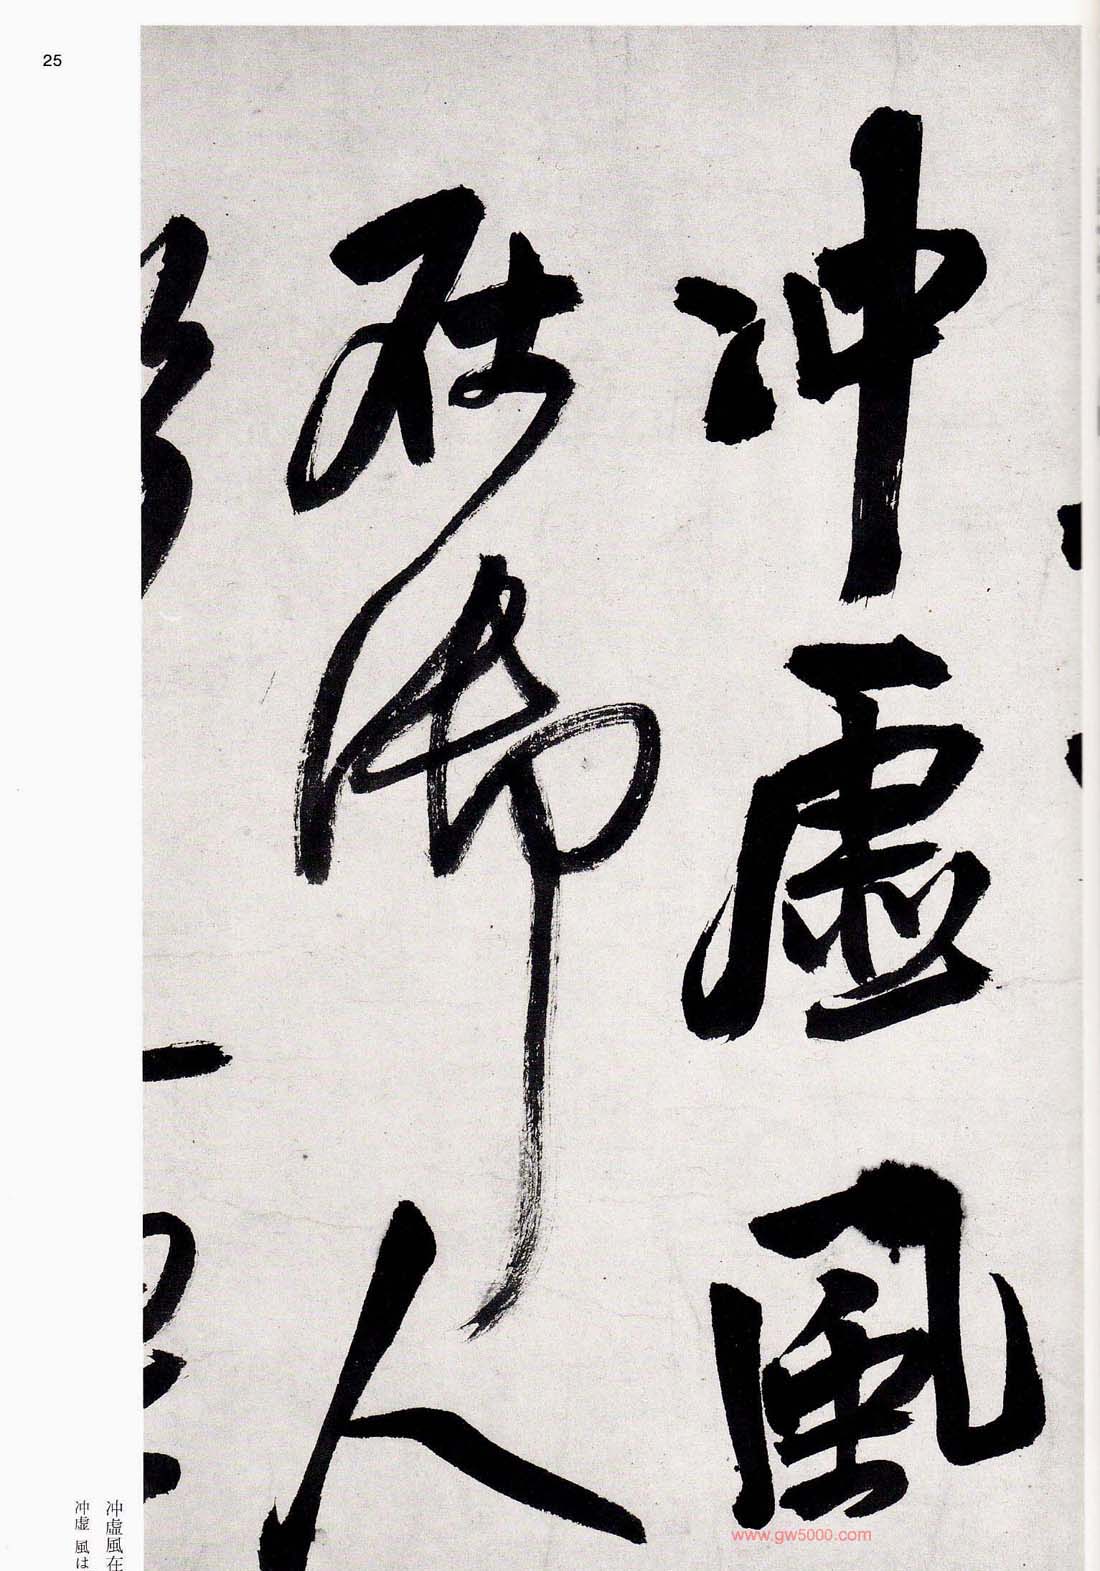 25
冲虛風
在御人
冲虛風在
冲虚 風は
www.gw5000.com